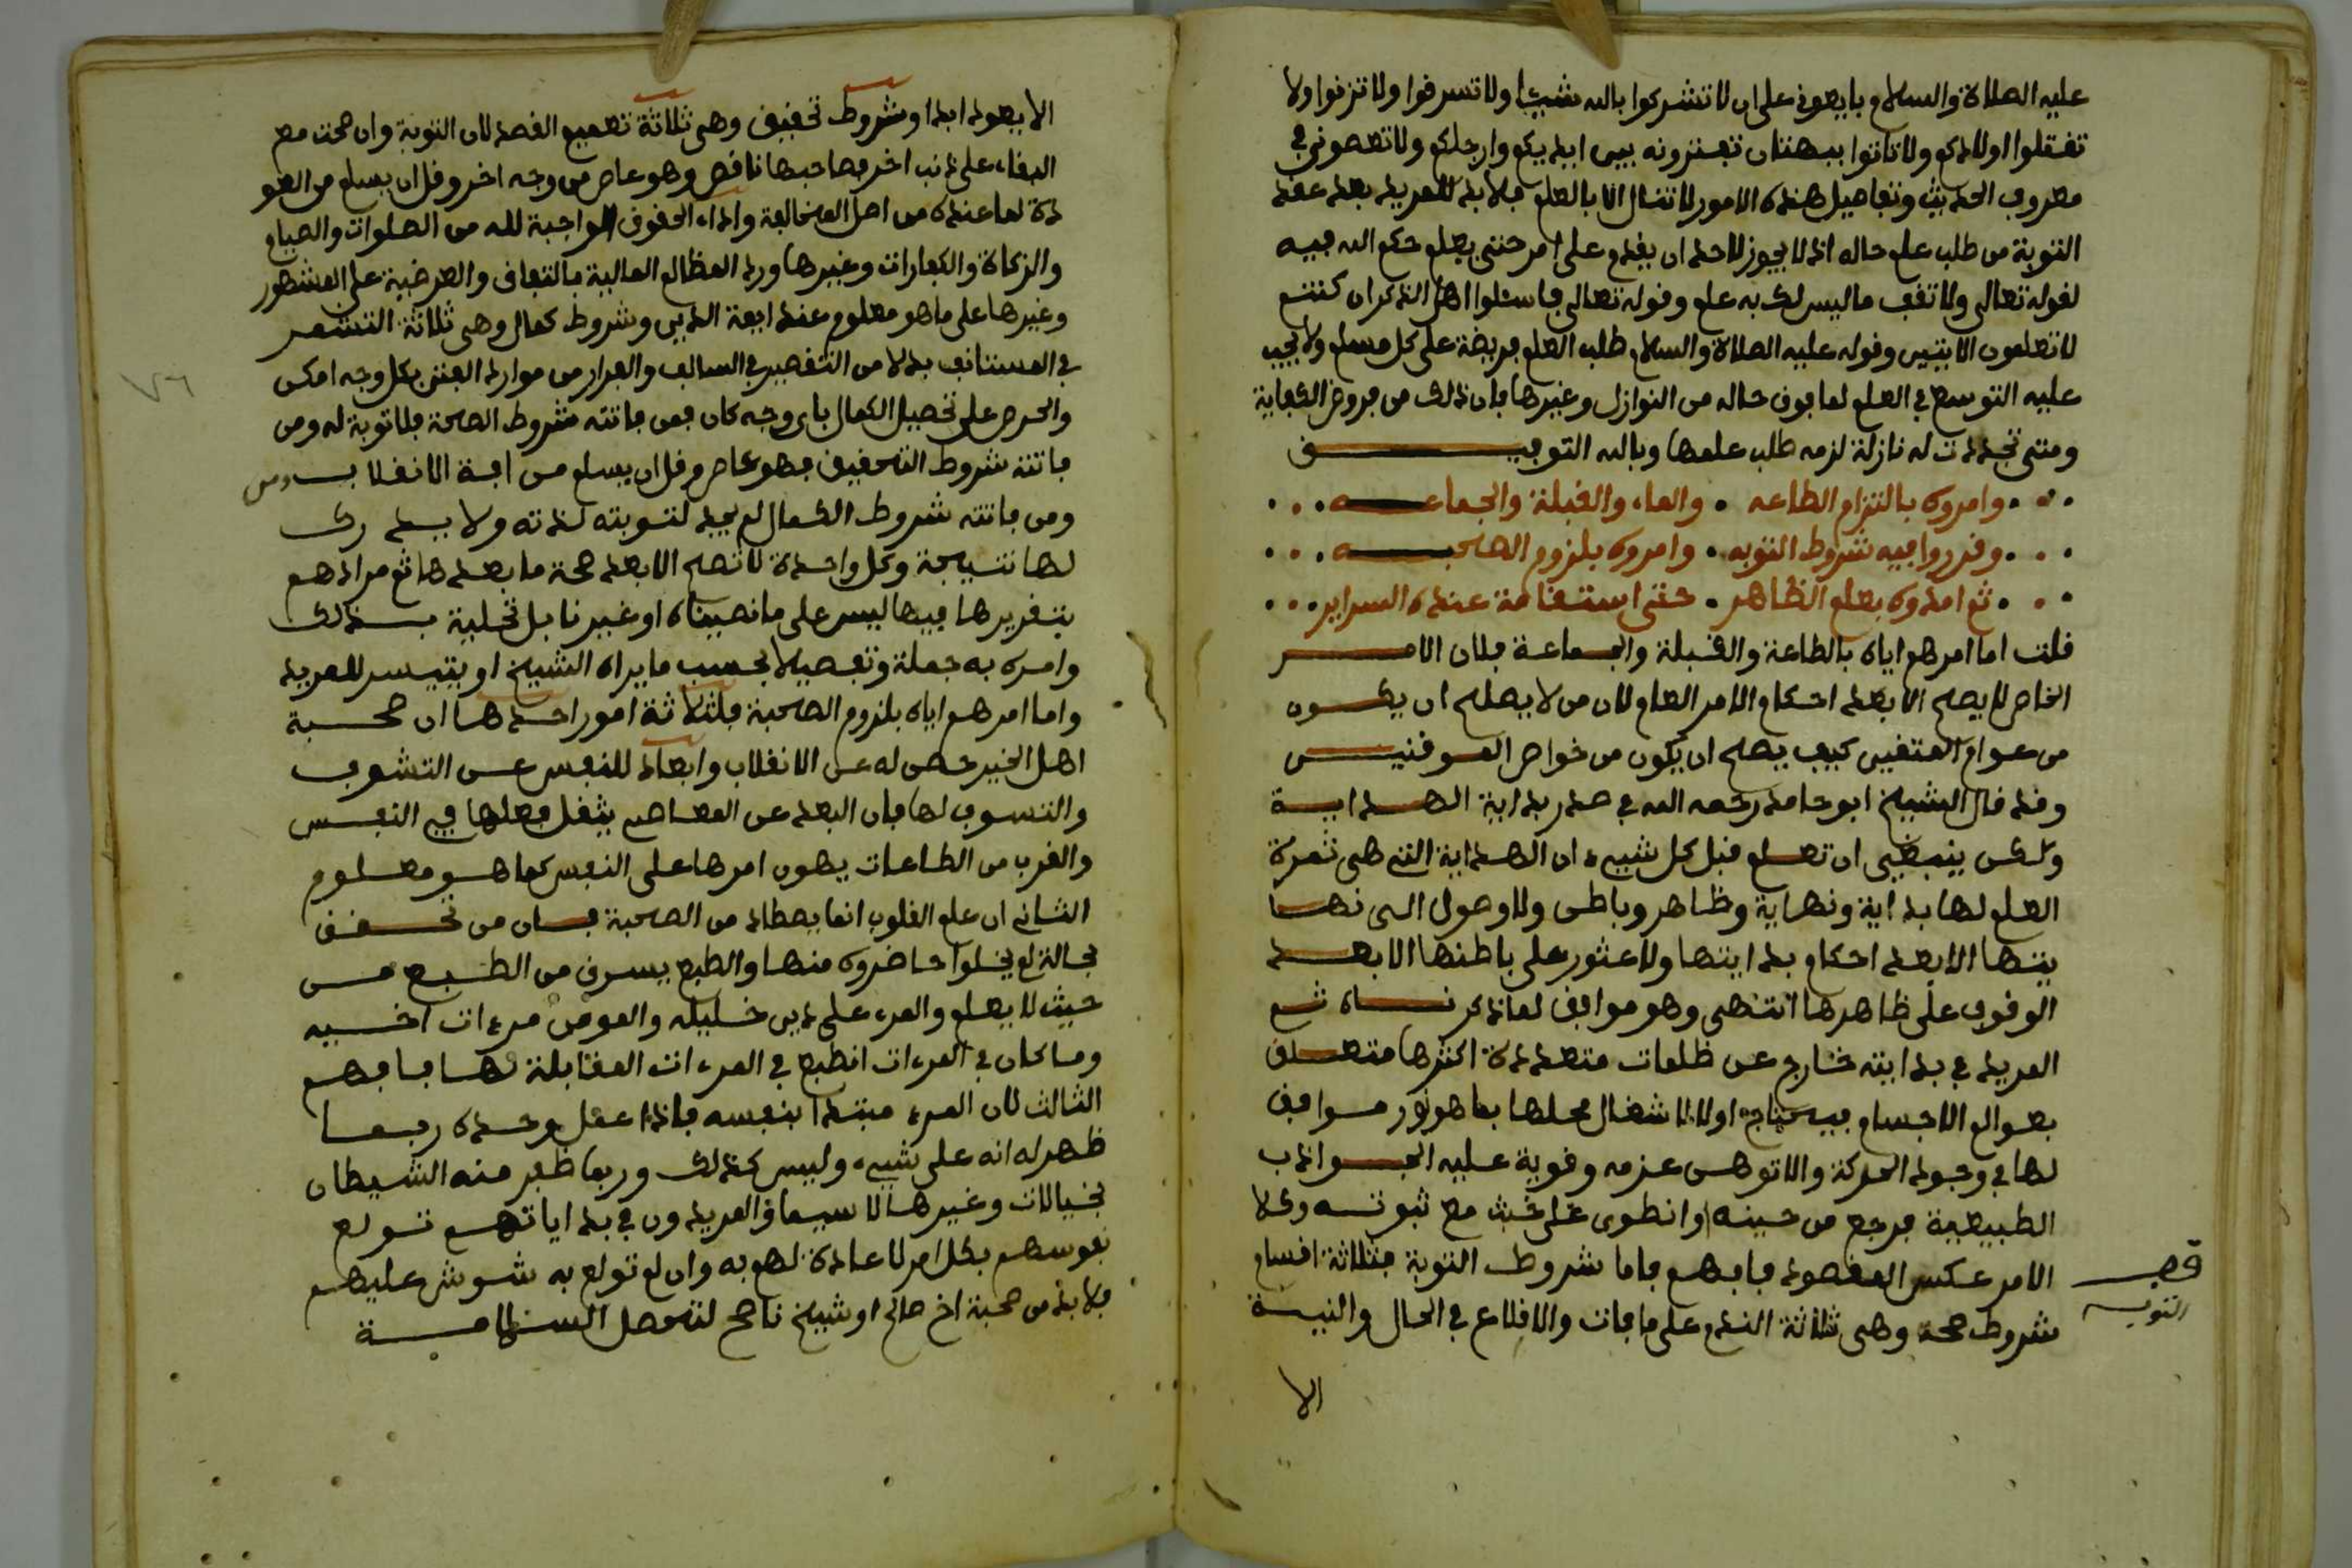 عليه الصلاة والسلام بايعوني على ان لا تشركوا بالله شيئا ولا تسرقوا ولا تزنوا ولا
تقتلوا اولادكم ولا تاتوا ببهتان تفترونه بين ايديكم وارجلكم ولا تعصوني في
معروف الحديث وتفاصيل هذه الامور لا تنال الا بالعلم فلا بد للمريد بعد عقد
التوبة من طلب علم حاله اذ لا يجوز لاحد ان يقدم على امر حتى يعلم حكم الله فيه
لقوله تعالى ولا تقف ما ليس لك به علم وقوله تعالى فاسئلوا اهل الذكر ان كنتم
لا تعلمون الايتين وقوله عليه الصلاة والسلام طلب العلم فريضة على كل مسلم ولا يجب
عليه التوسع في العلم لما فوق حاله من النوازل وغيرها فان ذلك من فروض الكفاية
ومتى تجددت له نازلة لزمه طلب علمها وبالله التوفيق
وامروه بالتزام الطاعه والماء والقبلة والجماعه
وقرروا فيه شروط التوبه وامروه بلزوم الصحبه
ثم امدوه بعلم الظاهر حتى استقامة عنده السراير
قلت اما امرهم اياه بالطاعة والقبلة والجماعة فلان الامر
الخاص لا يصح الا بعد احكام الامر العام لان من لا يصلح ان يكون
من عوام المتقين كيف يصلح ان يكون من خواص الموقنين
وقد قال الشيخ ابو حامد رحمه الله في صدر بداية الهداية
ولكن ينبغي ان تعلم قبل كل شيء ان الهداية التي هي ثمرة
العلم لها بداية ونهاية وظاهر وباطن ولا وصول الى نها
يتها الا بعد احكام بدايتها ولا عثور على باطنها الا بعد
الوقوف على ظاهرها انتهى وهو موافق لما ذكرناه ثم
المريد في بدايته خارج عن ظلمات متعددة اكثرها متعلق
بعوالم الاجسام فيحتاج اولا لاشغال محلها بما هو نور موافق
لها في وجود الحركة والا توهن عزمه وقوية عليه الجواذب
الطبيعية فرجع من حينه او انطوى على خبث مع ثبوته وكلا
الامر عكس المقصود فافهم فاما شروط التوبة فثلاثة اقسام
شروط صحة وهي ثلاثة الندم على ما فات والاقلاع في الحال والنية
قف
التوبه
الا
الا يعود ابدا وشروط تحقيق وهي ثلاثة تعميم القصد لان التوبة وان صحت مع
البقاء على ذنب اخر فصاحبها ناقص وهو عاص من وجه اخر وقل ان يسلم من العو
دة لما عنده من اصل المخالفة واداء الحقوق الواجبة لله من الصلوات والصيام
والزكاة والكفارات وغيرها ورد المظالم المالية باتفاق والعرضية على المشهور
وغيرها على ما هو معلوم عند ايمة الدين وشروط كمال وهي ثلاثة التشمر
في المستانف بدلا من التقصير في السالف والفرار من موارد الفتن بكل وجه امكن
والحرص على تحصيل الكمال باي وجه كان فمن فاتته شروط الصحة فلا توبة له ومن
فاتته شروط التحقيق فهو عاص وقل ان يسلم من افة الانقلاب ومن
ومن فاتته شروط الكمال لم يجد لتوبته لذته ولا يدرك
لها نتيجة وكل واحدة لا تصح الا بعد صحة ما بعدها ثم مرادهم
بتقريرها فيها ليس على ما نصيناه او غيرنا بل تحلية بذلك
وامره به جملة وتفصيلا بحسب ما يراه الشيخ او يتيسر للمريد
واما امرهم اياه بلزوم الصحبة فلثلاثة امور احدها ان صحبة
اهل الخير حصن له عن الانقلاب وابعاد للنفس عن التشوف
والتسوف لها فان البعد عن المعاصي يثقل فعلها في النفس
والقرب من الطاعات يهون امرها على النفس كما هو معلوم
الثاني ان علم القلوب انما يصطاد من الصحبة فان من تحقق
بحالة لم يخلوا حاضروه منها والطبع يسرق من الطبع من
حيث لا يعلم والمرء على دين خليله والمومن مرءات اخيه
وما كان في المرءات انطبع في المرءات المقابلة لها فافهم
الثالث لان المرء مبتدا بنفسه فاذا عمل وحده ربما
ظهر له انه على شيء وليس كذلك وربما ظفر منه الشيطان
بخيالات وغيرها لا سيما والمريدون في بداياتهم تولع
نفوسهم بكل امر لا عادة لهم به وان لم تولع به شوش عليهم
فلا بد من صحبة اخ صالح او شيخ ناصح لتحصل السلامة
٧٦